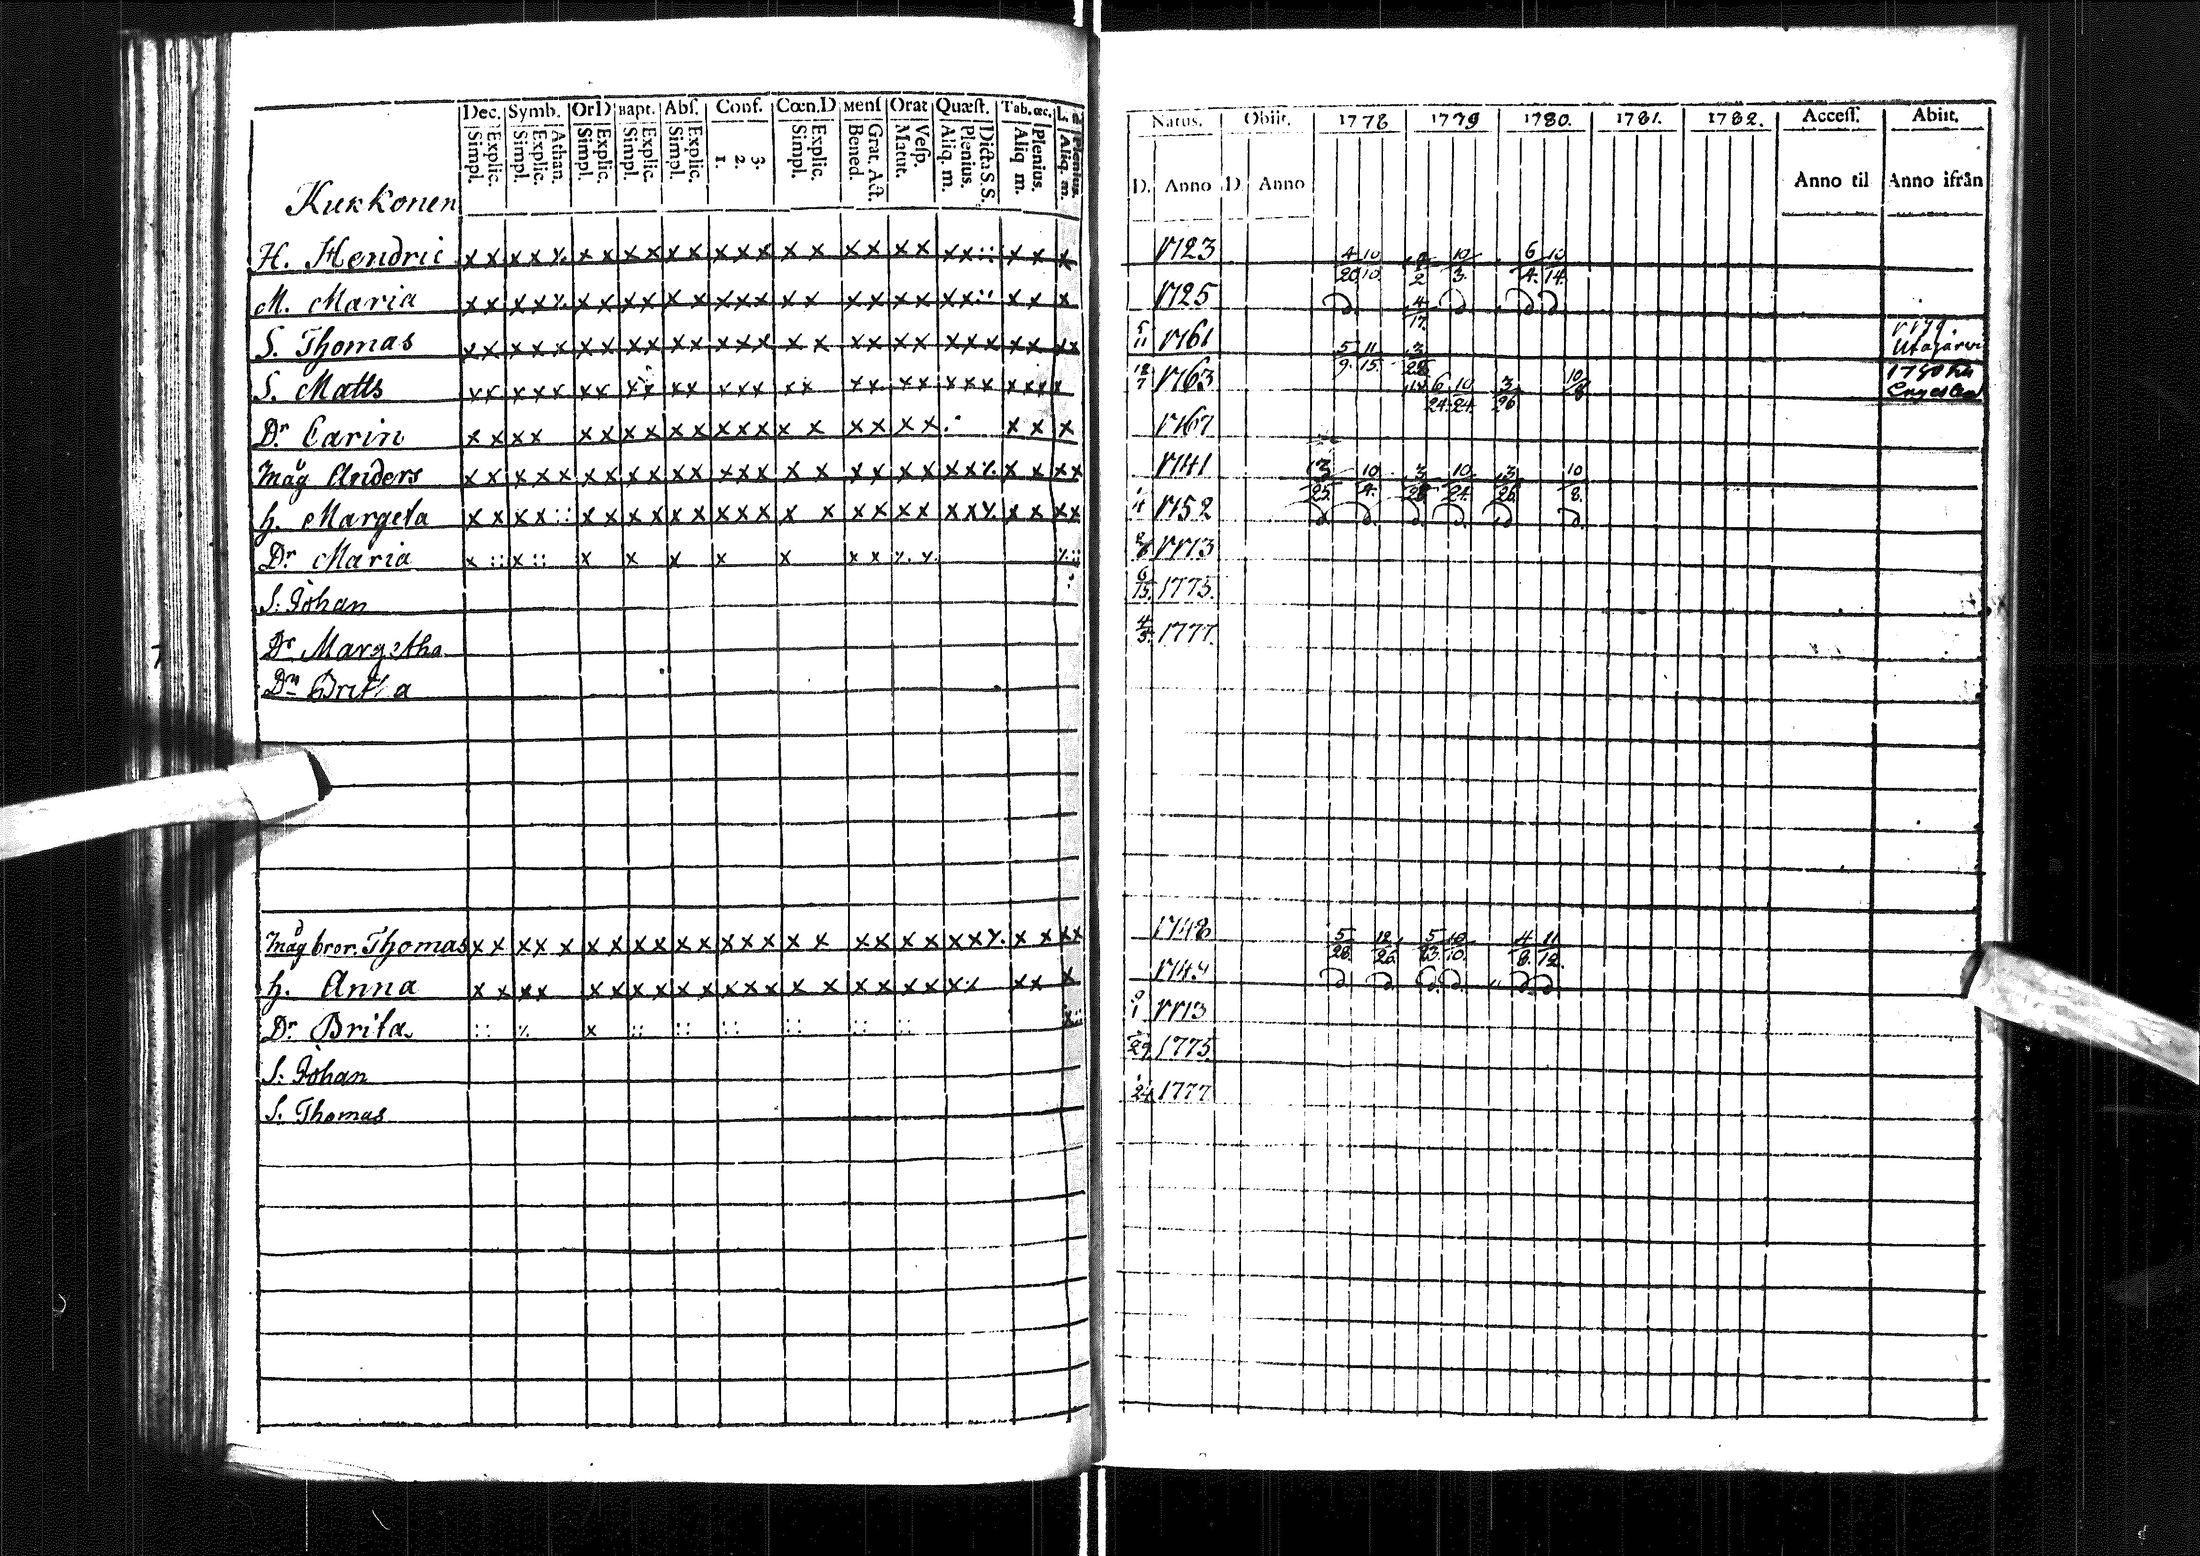 Dec. Symb. OrD Bapt. Abſ. Conf. Cœn.D Menſ Orat Quæſt. Tab.œc.
Simpl. Explic. Simpl. Explic. Athan. Simpl. Explic. Simpl. Explic. Simpl. Explic. 1. 2. 3. Simpl. Explic. Bened. Grat. Act. Matut. Veſp. Aliq. m. Plenius. Dicta S.S. Aliq m. Plenius. Aliq. m. Plenius.
Natus. Obiit. 1778 1779 1780. 1781. 1782. Acceſſ. Abiit.
D. Anno D. Anno Anno til Anno ifrån
Kukkonen
H. Hendric x x x x x x x x x x x x x x x x x x x x x :: x x x 1723 4/20 10/10 10/3 6/4 10/14
M. Maria x x x x x x x x x x x x x x x x x x x x x :: x x x 1725 4/17
S. Thomas x x x x x x x x x x x x x x x x x x x x x x x x x x 5/11 1761 5/9 11/15 Utajärvi
S. Matts x x x x x x x x x x x x x x x x x x x x x x x x x x 12/7 1763 6/24 10/24 3/26 10/8 1780
Dr Carin x x x x x x x x x x x x x x x x x x x x x x 1767
Måg Anders x x x x x x x x x x x x x x x x x x x x x x x x x 1741 3/25 10/4 10/24 3/26 10/8
h. Margeta x x x x :: x x x x x x x x x x x x x x x x x x x x x 1752
Dr Maria x :: x :: x x x x x x x 1773
S. Johan 6/15 1775
Dr Margetha 4/3 1777
Dr Britha
Måg bror. Thomas x x x x x x x x x x x x x x x x x x x x x x x x x x 1748 5/28 12/26 5/23 10/10 4/8 11/12
h. Anna x x x x x x x x x x x x x x x x x x x x x x x 1749
Dr Brita :: x :: :: :: :: :: :: 1773
S. Johan 29 1775
S. Thomas 24 1777